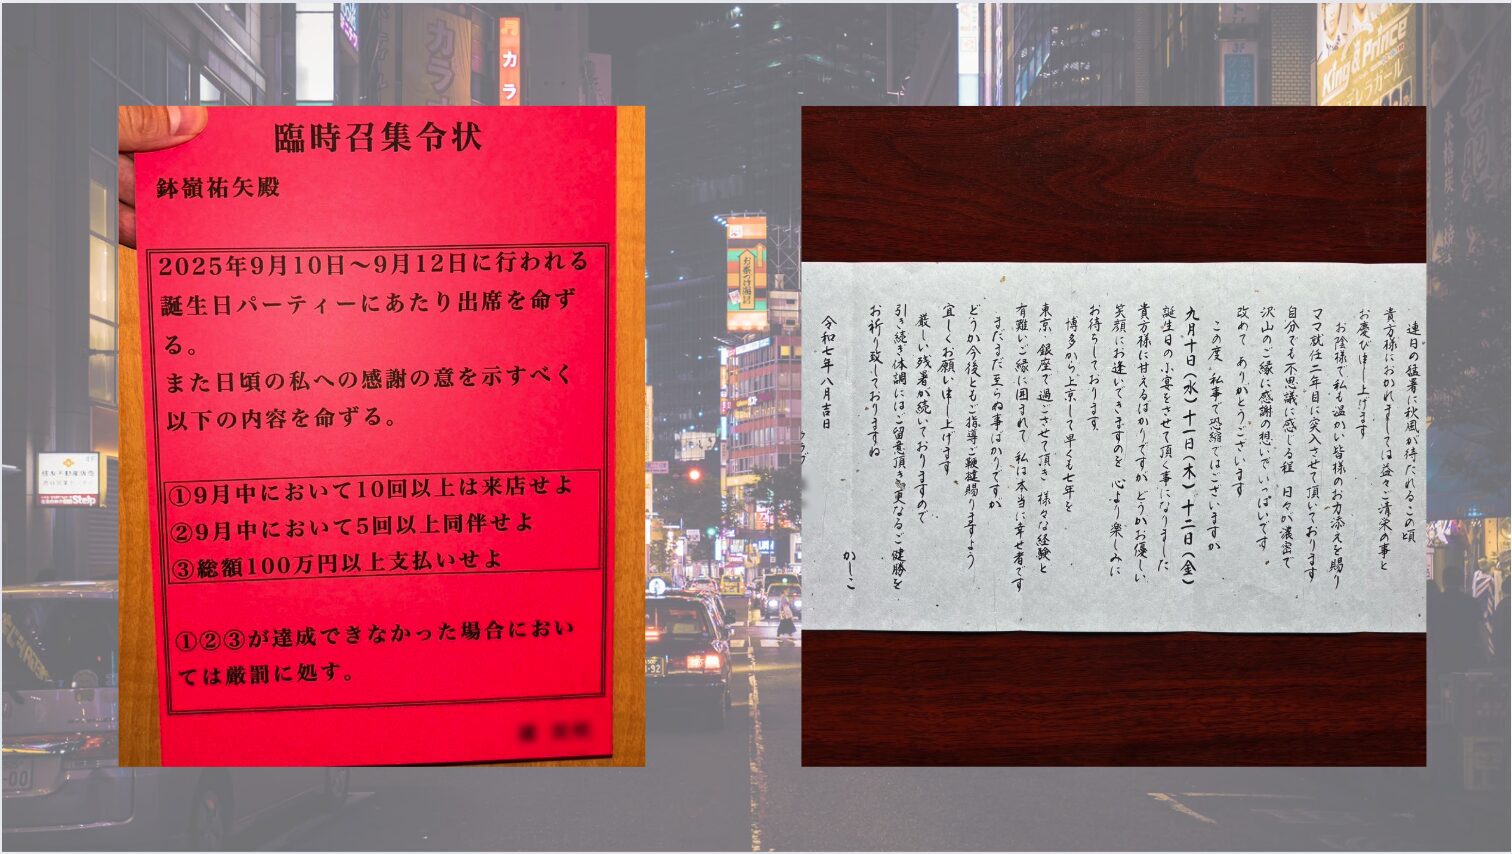 臨時召集令状
鉢嶺祐矢殿
2025年9月10日〜9月12日に行われる
誕生日パーティーにあたり出席を命ず
る。
また日頃の私への感謝の意を示すべく
以下の内容を命ずる。
①9月中において10回以上は来店せよ
②9月中において5回以上同伴せよ
③総額100万円以上支払いせよ
①②③が達成できなかった場合におい
ては厳罰に処す。
連日の猛暑に秋風が待たれるこの頃
貴方様におかれましては益々ご清栄の事と
お慶び申し上げます
お陰様で私も温かい皆様のお力添えを賜り
ママ就任二年目に突入させて頂いております
自分でも不思議に感じる程 日々が濃密で
沢山のご縁に感謝の想いでいっぱいです
改めて ありがとうございます
この度 私事で恐縮ではございますが
九月十日(水)十一日(木)十二日(金)
誕生日の小宴をさせて頂く事になりました
貴方様に甘えるばかりですが どうかお優しい
笑顔にお逢いできますのを 心より楽しみに
お待ちしております
博多から上京して早くも七年を
東京 銀座で過ごさせて頂き 様々な経験と
有難いご縁に囲まれて 私は本当に幸せ者です
まだまだ至らぬ事ばかりですが
どうか今後ともご指導ご鞭撻賜りますよう
宜しくお願い申し上げます
厳しい残暑が続いておりますので
引き続き体調にはご留意頂き 更なるご健勝を
お祈り致しておりますね
かしこ
令和七年八月吉日
クラブ
カラ
カラオ
King & Prince
デレラガール
本格炭
お茶づけ海苔
3F
Step